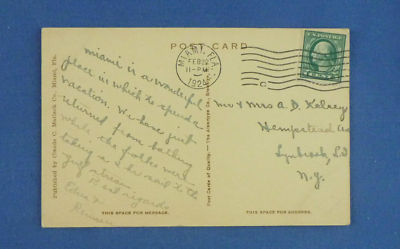 POST CARD
MIAMI, FLA.
FEB 12
11-PM
192
U.S. POSTAGE
1 CENT 1
Published by Charles C. Matlack Co., Miami, Fla.
Miami is a wonderful
place in which to spend a
vacation. We have just
returned from bathing
while the folks were
taking a sail to the
Gulf stream.
Best regards
Edna &
THIS SPACE FOR MESSAGE.
Post Cards of Quality. — The Albertype Co., Brooklyn
Mr & Mrs A. D. Kelsey
Hempstead Av
Lynbrook, L.I
N.Y.
THIS SPACE FOR ADDRESS.